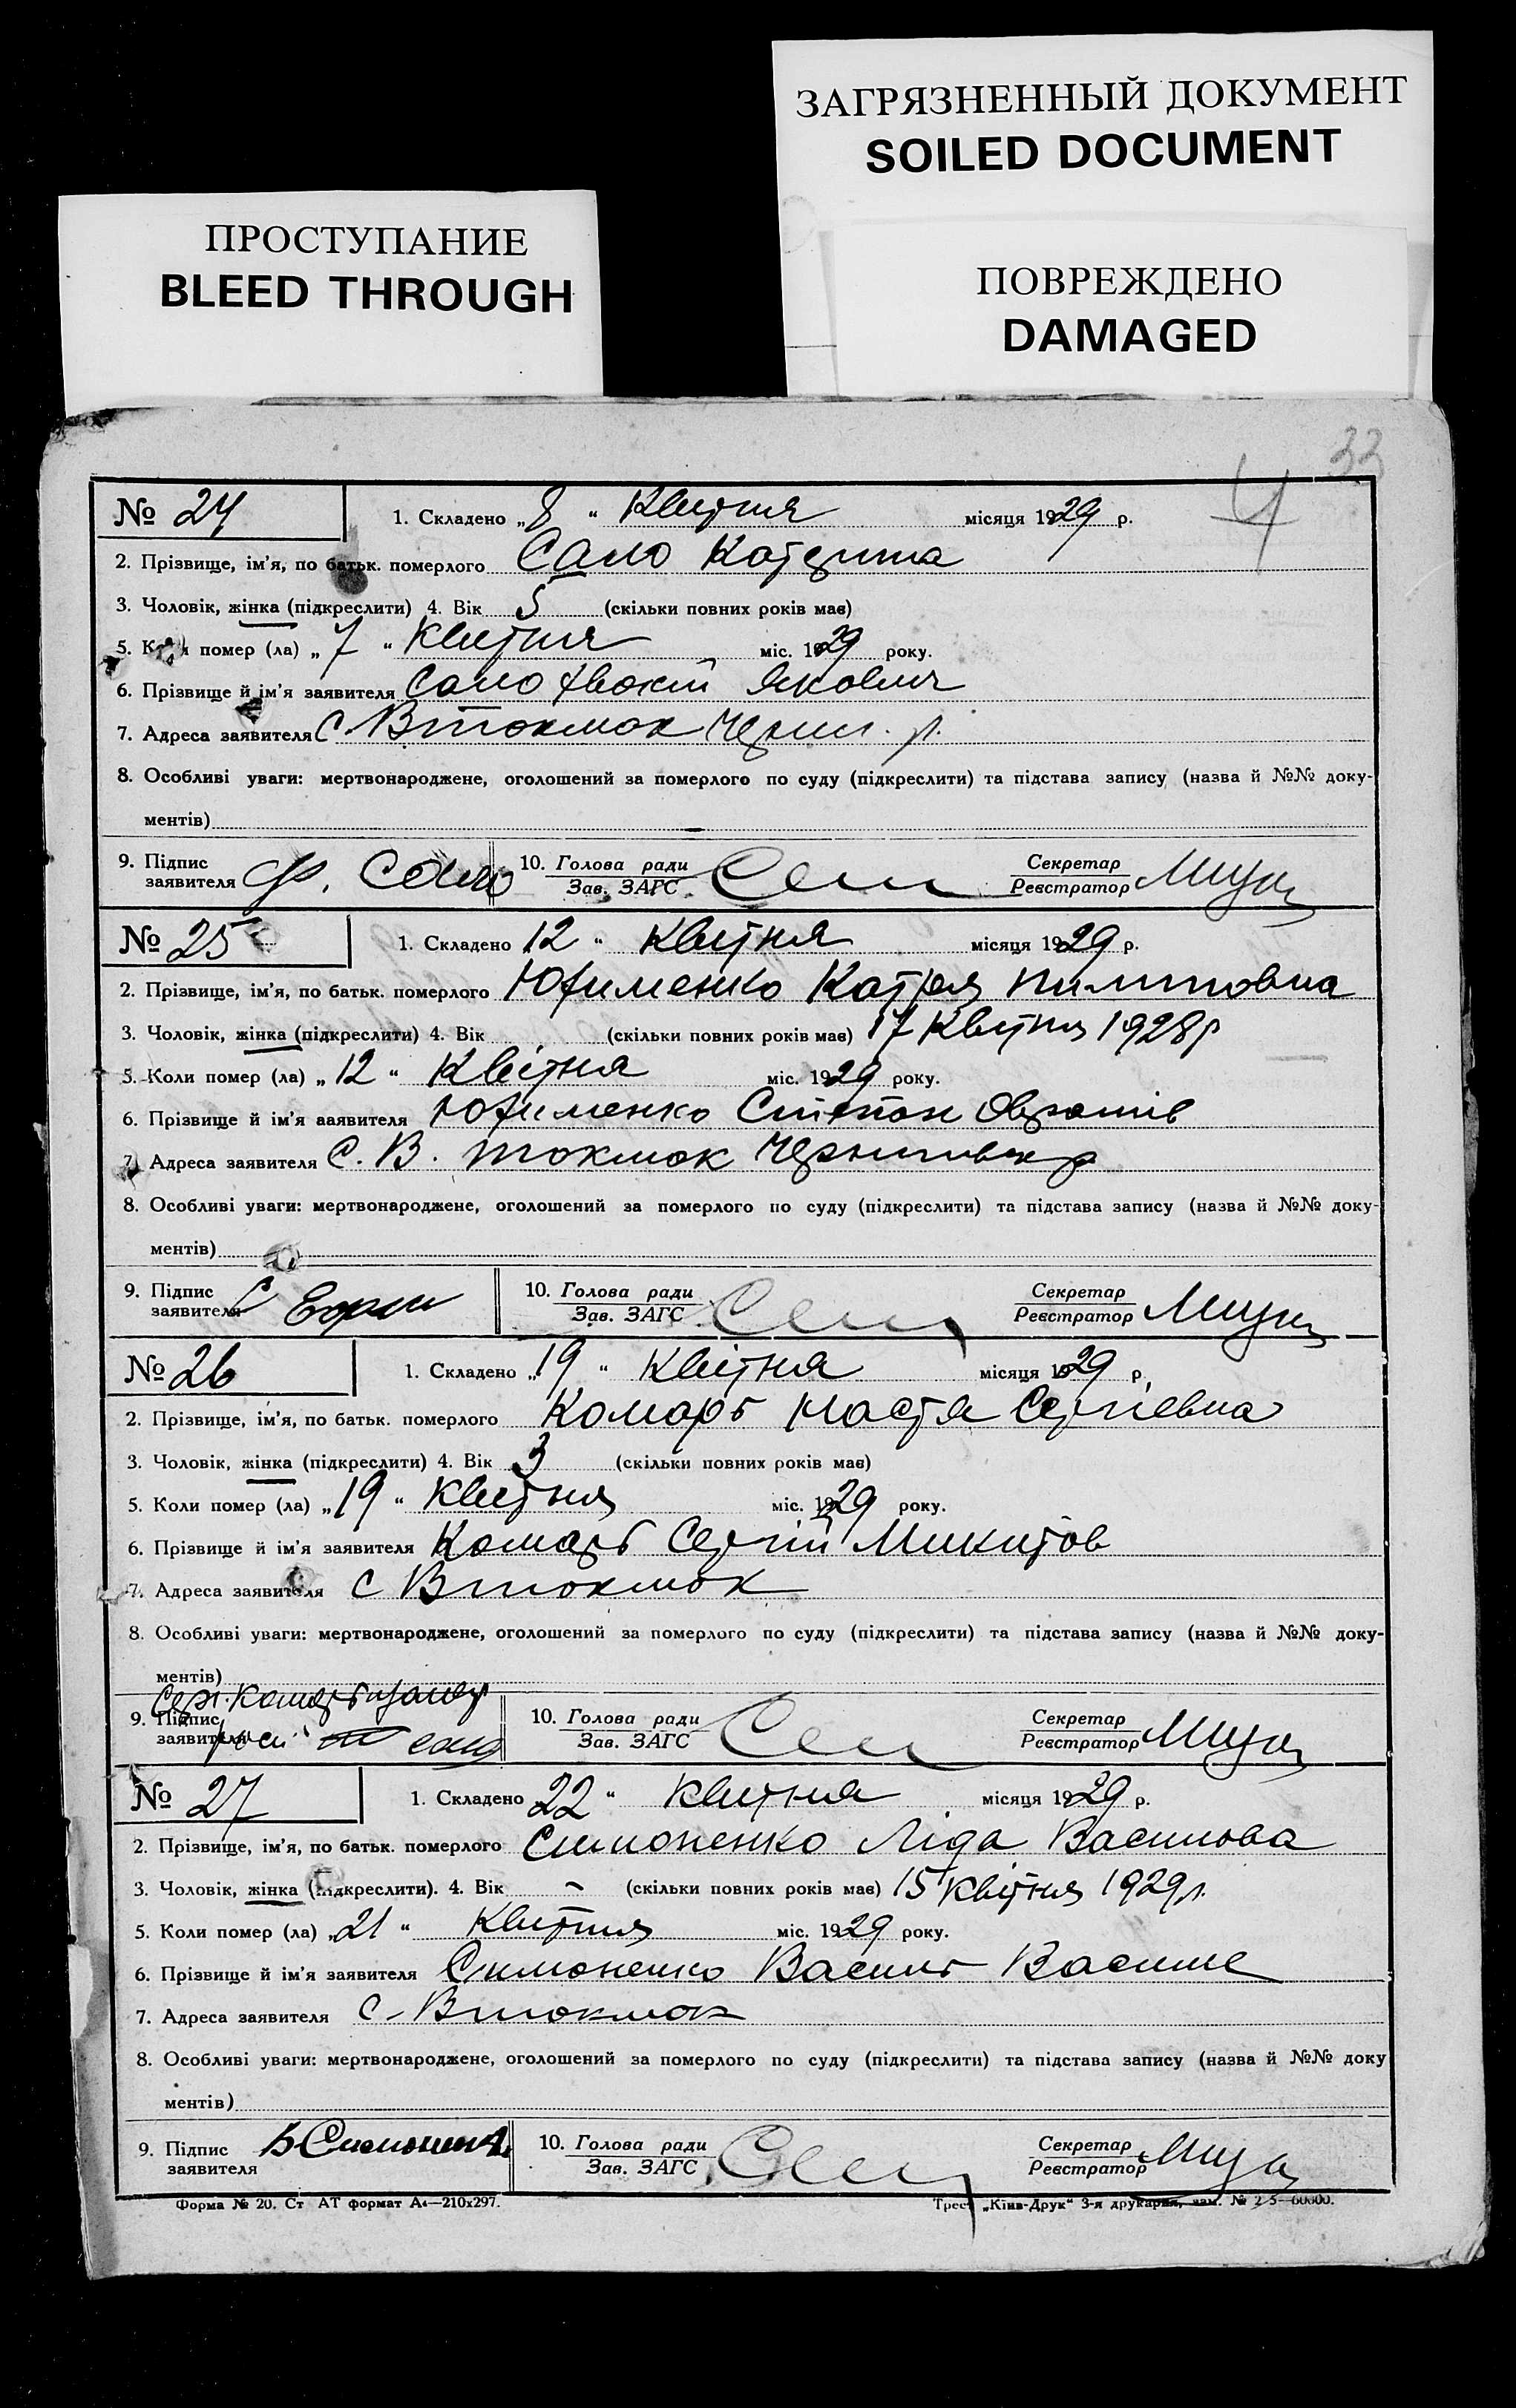 ЗАГРЯЗНЕННЫЙ ДОКУМЕНТ
SOILED DOCUMENT
ПРОСТУПАНИЕ
BLEED THROUGH
ПОВРЕЖДЕНО
DAMAGED
33
4
№ 24 1. Складено „8“ Квитня місяця 1929 р.
2. Прізвище, ім'я, по батьк. померлого Сало Катерина
3. Чоловік, жінка (підкреслити) 4. Вік 5 (скільки повних років має)
5. Коли помер (ла) „7“ Квитня міс. 1929 року.
6. Прізвище й ім'я заявителя Сало Якович
7. Адреса заявителя С. В токмак Черниг. р.
8. Особливі уваги: мертвонароджене, оголошений за померлого по суду (підкреслити) та підстава запису (назва й №№ доку-
ментів)
9. Підпис заявителя Ф. Сало 10. Голова ради Зав. ЗАГС Секретар Реєстратор
№ 25 1. Складено 12“ Квітня місяця 1929 р.
2. Прізвище, ім'я, по батьк. померлого Юхименко Катря Пилиповна
3. Чоловік, жінка (підкреслити) 4. Вік (скільки повних років має) 17 Квітня 1928р
5. Коли помер (ла) „12“ Квітня міс. 1929 року.
6. Прізвище й ім'я заявителя Юхименко Степан
7. Адреса заявителя С. В. токмак
8. Особливі уваги: мертвонароджене, оголошений за померлого по суду (підкреслити) та підстава запису (назва й №№ доку-
ментів)
9. Підпис заявителя 10. Голова ради Зав. ЗАГС Секретар Реєстратор
№ 26 1. Складено „19“ Квітня місяця 1929 р.
2. Прізвище, ім'я, по батьк. померлого Комарь Настя Сергіевна
3. Чоловік, жінка (підкреслити) 4. Вік 3 (скільки повних років має)
5. Коли помер (ла) „19“ Квитня міс. 1929 року.
6. Прізвище й ім'я заявителя Комарь Сергій Микитов
7. Адреса заявителя С В токмак
8. Особливі уваги: мертвонароджене, оголошений за померлого по суду (підкреслити) та підстава запису (назва й №№ доку-
ментів)
9. Підпис заявителя 10. Голова ради Зав. ЗАГС Секретар Реєстратор
№ 27 1. Складено 22“ Квитня місяця 1929 р.
2. Прізвище, ім'я, по батьк. померлого Симоненко Ліда Василова
3. Чоловік, жінка (підкреслити). 4. Вік - (скільки повних років має) 15 Квітня 1929р.
5. Коли помер (ла) „21“ Квитня міс. 1929 року.
6. Прізвище й ім'я заявителя Симоненко Василь
7. Адреса заявителя С. В токмак
8. Особливі уваги: мертвонароджене, оголошений за померлого по суду (підкреслити) та підстава запису (назва й №№ доку
ментів)
9. Підпис заявителя В Симоненко 10. Голова ради Зав. ЗАГС Секретар Реєстратор
Форма № 20. Ст АТ формат А4—210х297. Трест „Київ-Друк“ 3-я друкарня, зам. №